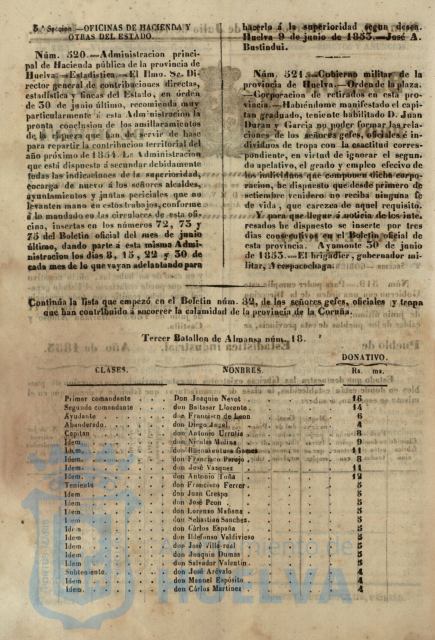 5.ª Seccion.—OFICINAS DE HACIENDA Y
OTRAS DEL ESTADO.
Núm. 520.—Administracion princi-
pal de Hacienda pública de la provincia de
Huelva.—Estadística.—El Ilmo. Sr. Di-
rector general de contribuciones directas,
estadística y fincas del Estado, en órden
de 30 de junio último, recomienda muy
particularmente á esta Administracion la
pronta conclusion de los amillaramientos
de la riqueza que han de servir de base
para repartir la contribucion territorial del
año próximo de 1854. La Administracion
que está dispuesta á secundar debidamente
todas las indicaciones de la superioridad,
encarga de nuevo á los señores alcaldes,
ayuntamientos y juntas periciales que no
levanten mano en estos trabajos, conforme
á lo mandado en las circulares de esta ofi-
cina, insertas en los números 72, 73 y
75 del Boletin oficial del mes de junio
último, dando parte á esta misma Admi-
nistracion los dias 8, 15, 22 y 30 de
cada mes de lo que vayan adelantando para
hacerlo á la superioridad segun desea.
Huelva 9 de junio de 1853.—José A.
Bustindui.
Núm. 521.—Gobierno militar de la
provincia de Huelva.—Orden de la plaza.
—Corporacion de retirados en esta pro-
vincia.—Habiéndome manifestado el capi-
tan graduado, teniente habilitado D. Juan
Duran y Garcia no poder formar las rela-
ciones de los señores gefes, oficiales é in-
dividuos de tropa con la esactitud corres-
pondiente, en virtud de ignorar el segun-
do apelativo, el grado y empleo efectivo de
los individuos que componen dicha corpo-
racion, he dispuesto que desde primero de
setiembre venidero no reciba ninguna fé
de vida, que carezca de aquel requisito.
Y para que llegue á noticia de los inte-
resados he dispuesto se inserte por tres
dias consecutivos en el Boletin oficial de
esta provincia. Ayamonte 30 de junio
de 1853.—El brigadier, gobernador mi-
litar, Arespacochaga.
Continúa la lista que empezó en el Boletin núm. 82, de los señores gefes, oficiales y tropa
que han contribuido á socorrer la calamidad de la provincia de la Coruña.
Tercer Batallon de Almansa núm. 18.
DONATIVO.
CLASES. NOMBRES. Rs. ms.
Primer comandante . . . Don Joaquin Nevot . . . 16
Segundo comandante . . . don Baltasar Llorente . . . 14
Ayudante . . . don Francisco de Leon . . . 6
Abanderado . . . don Diego Angel . . . 4
Capitan . . . don Antonio Urrutia . . . 8
Idem . . . don Nicolas Molina . . . 9
Idem . . . don Buenaventura Gomes . . . 11
Idem . . . don Francisco Parejo . . . 8
Idem . . . don José Vasquez . . . 11
Idem . . . don Antonio Toña . . . 12
Teniente . . . don Francisco Ferrer . . . 5
Idem . . . don Juan Crespo . . . 5
Idem . . . don José Peon . . . 5
Idem . . . don Lorenzo Mañona . . . 5
Idem . . . don Sebastian Sanchez . . . 5
Idem . . . don Cárlos España . . . 5
Idem . . . don Ildefonso Valdivieso . . . 5
Idem . . . don José Villa-real . . . 5
Idem . . . don Joaquin Dumas . . . 5
Idem . . . don Salvador Valentin . . . 5
Subteniente . . . don José Arévalo . . . 4
Idem . . . don Manuel Espósito . . . 4
Idem . . . don Cárlos Martinez . . . 4
Ayuntamiento de
HUELVA